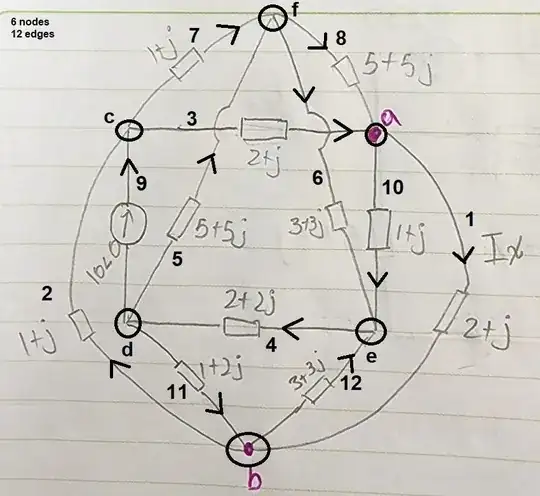 6 nodes
12 edges
f
7
8
1+j
5+5j
c
3
a
2+j
9
6
10
1
10∠0
5
5+5j
3+3j
1+j
Ix
2
2+2j
2+j
1+j
d
4
e
11
1+2j
3+3j
12
b